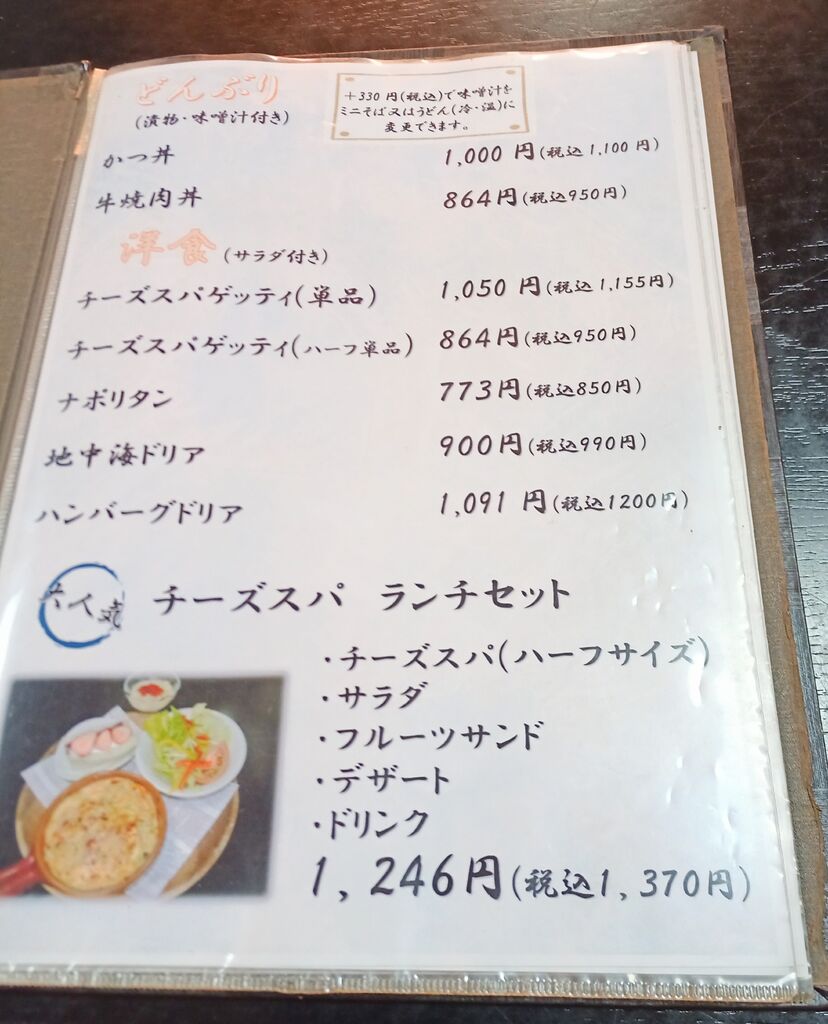 どんぶり
(漬物・味噌汁付き)
+330円(税込)で味噌汁を
ミニそば又はうどん(冷・温)に
変更できます。
かつ丼 1,000 円(税込1,100 円)
牛焼肉丼 864円(税込950円)
洋食 (サラダ付き)
チーズスパゲッティ(単品) 1,050 円(税込1,155円)
チーズスパゲッティ(ハーフ単品) 864円(税込950円)
ナポリタン 773円(税込850円)
地中海ドリア 900円(税込990円)
ハンバーグドリア 1,091 円(税込1200円)
大人気 チーズスパ ランチセット
・チーズスパ(ハーフサイズ)
・サラダ
・フルーツサンド
・デザート
・ドリンク
1,246円(税込1,370円)